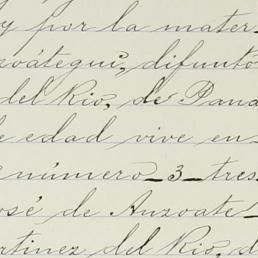 y por la mater_
zoátegui, difunto
del Rio, de Pana
e edad vive en
número _3_ tres
osé de Anzoate_
artinez del Rio, d